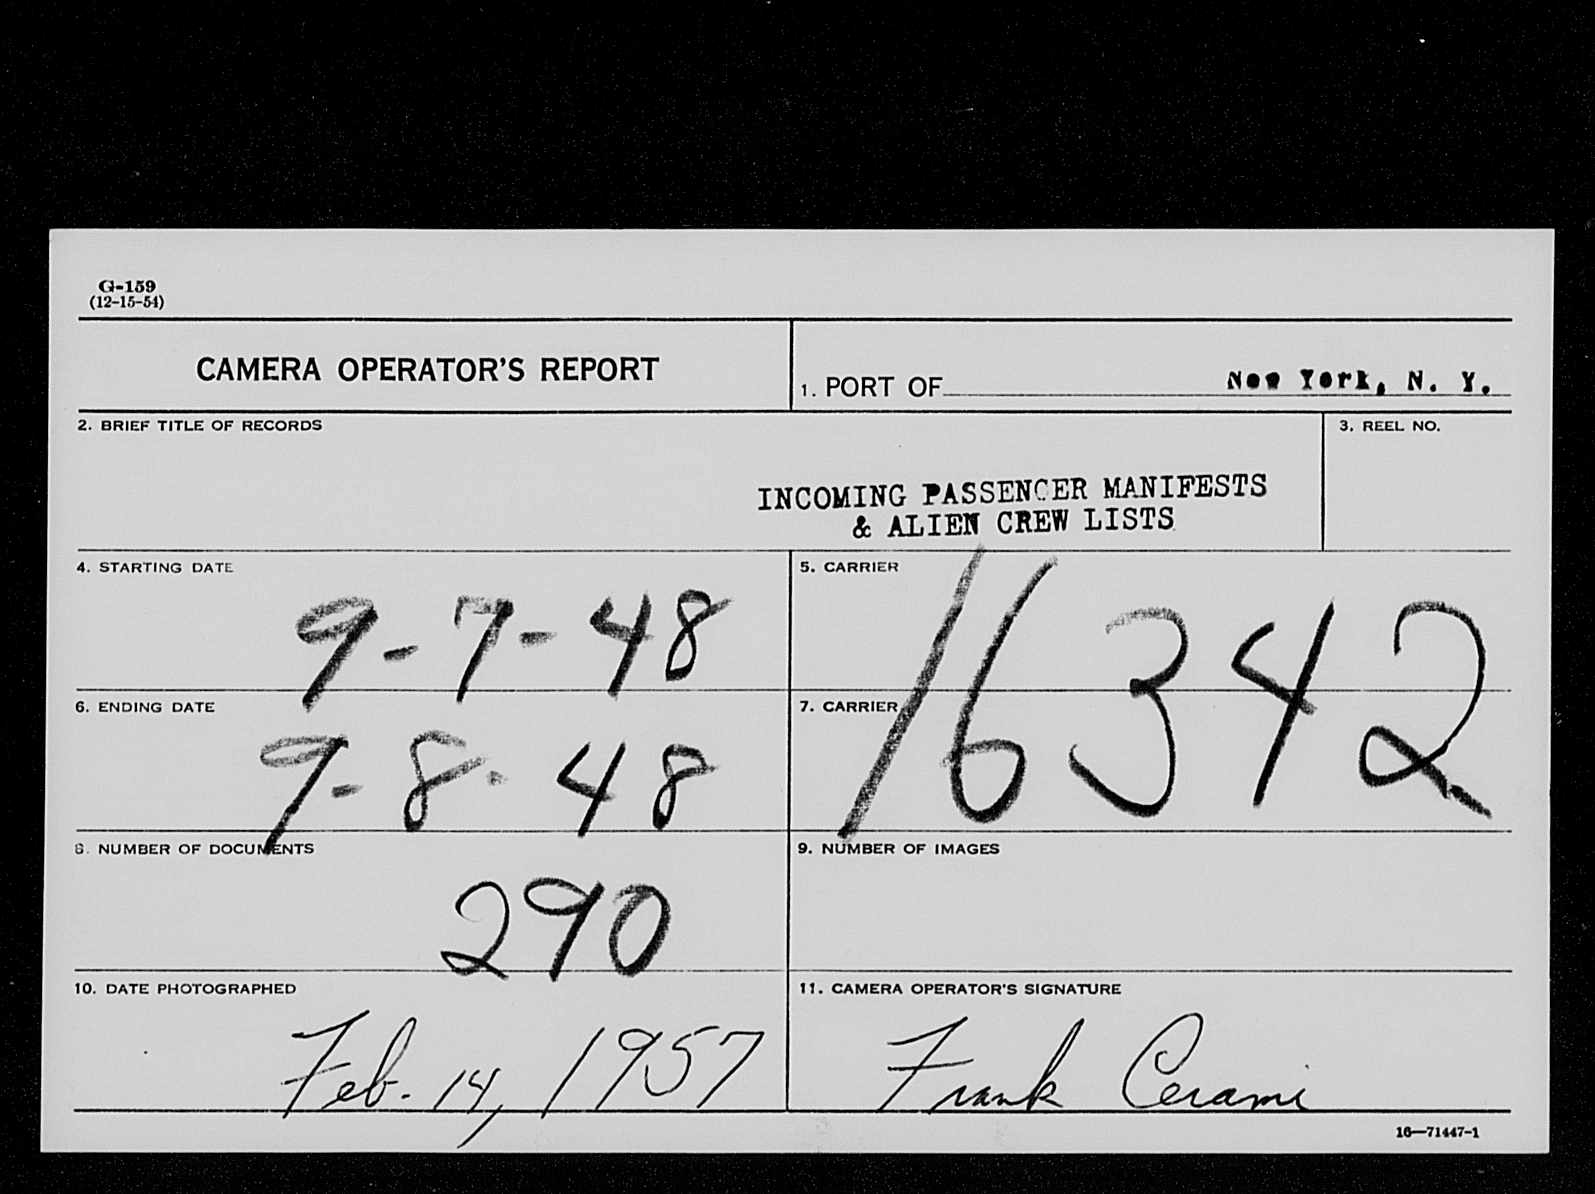 G-159
(12-15-54)
CAMERA OPERATOR'S REPORT
1. PORT OF New York, N. Y.
2. BRIEF TITLE OF RECORDS
3. REEL NO.
INCOMING PASSENGER MANIFESTS
& ALIEN CREW LISTS
4. STARTING DATE
9-7-48
5. CARRIER
16342
6. ENDING DATE
9-8-48
7. CARRIER
8. NUMBER OF DOCUMENTS
290
9. NUMBER OF IMAGES
10. DATE PHOTOGRAPHED
Feb. 14, 1957
11. CAMERA OPERATOR'S SIGNATURE
Frank Cerami
16—71447-1